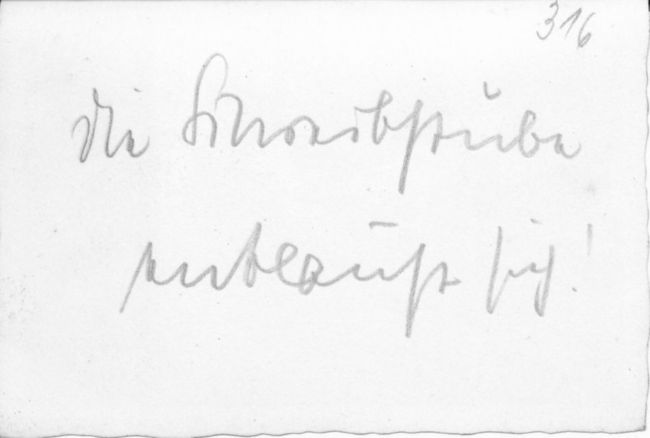 316
die Schreibstube
entlaust sich!